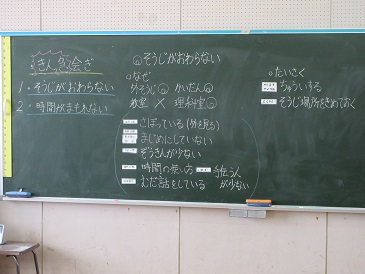 きん急会ぎ
1.そうじがおわらない
2.時間がまもれない
そうじがおわらない
なぜ
外そうじ かいだん
教室 × 理科室
さぼっている(外を見る)
まじめにしていない
ぞうきんが少ない
時間の使い方 手伝う人が少ない
むだ話をしている
たいさく
ちゅういする
そうじ場所をきめておく